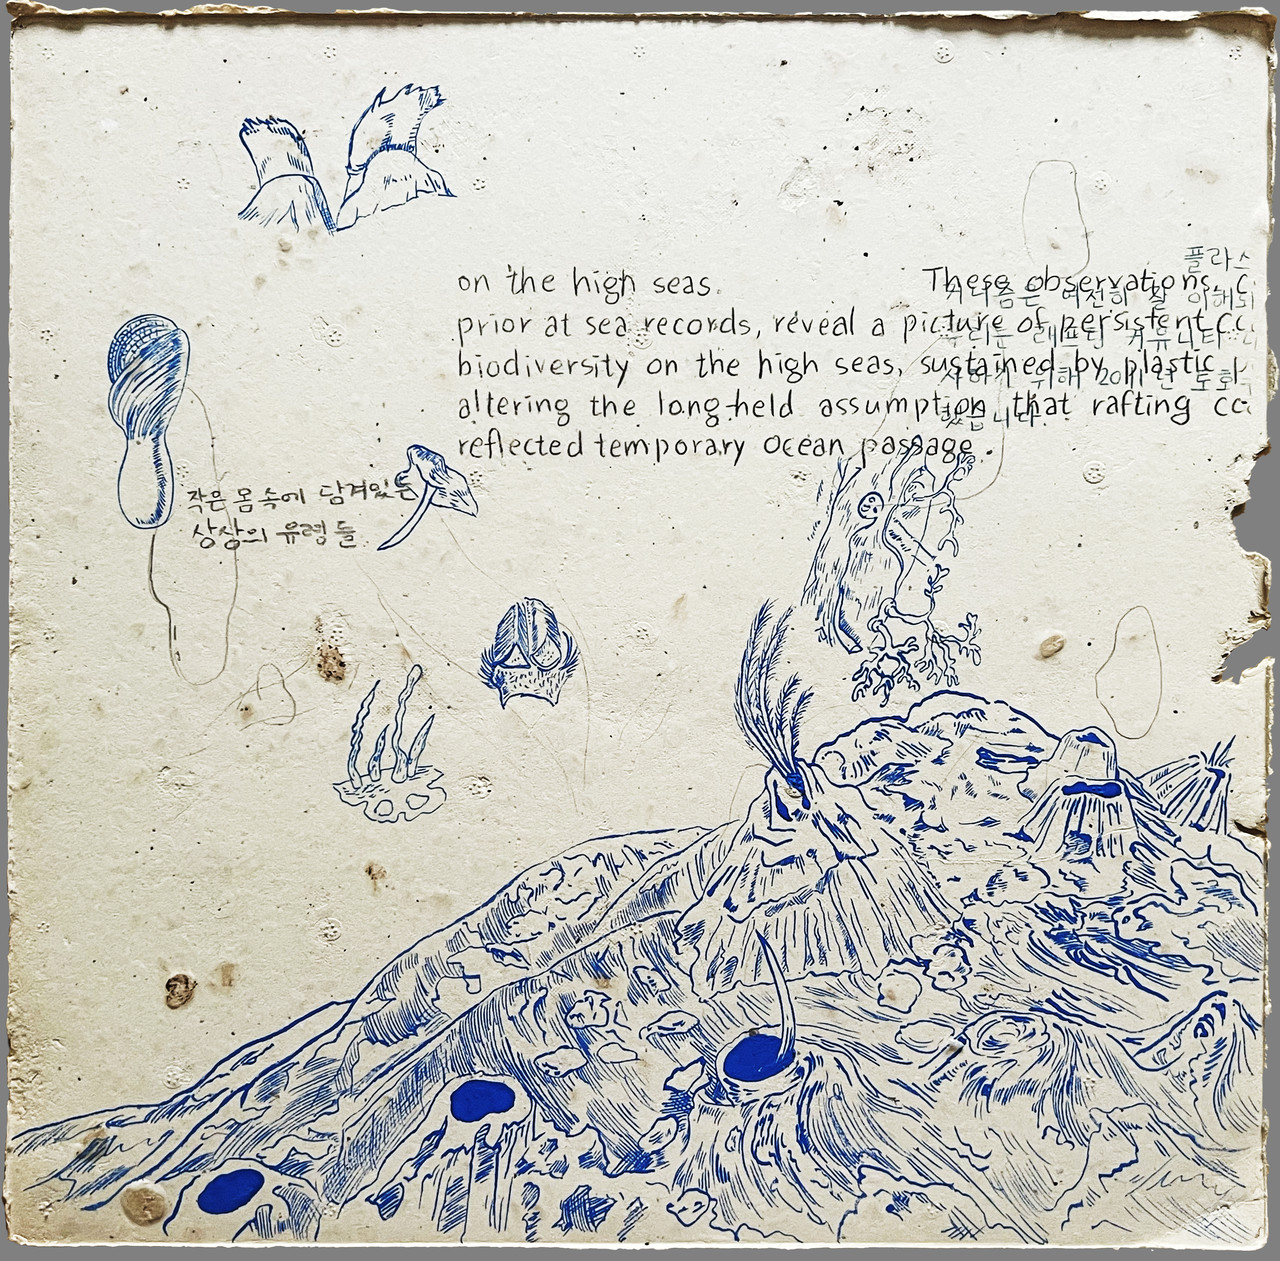 on the high seas.
These observations, c
prior at sea records, reveal a picture of persistent co
biodiversity on the high seas, sustained by plastic p
altering the long-held assumption that rafting co
reflected temporary ocean passage.
플라스
여전히 잘 이해되
위해
했습니다.
작은 몸 속에 담겨있는
상상의 유령들